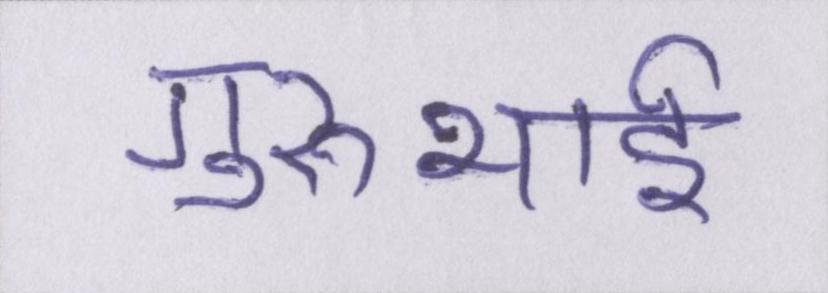 गुरुभाई